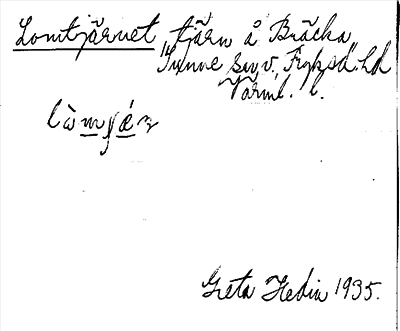 Lomtjärnet tjärn å Bräcka
Sunne sn, v. Fryksd. hd
Värml. l.
lòmɟæ̀n
Greta Hedin 1935.